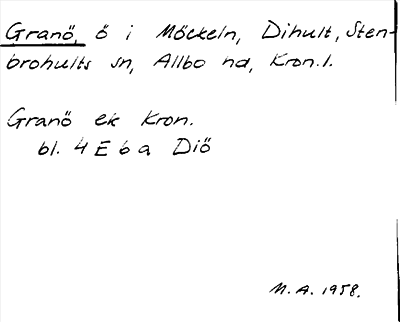 Granö, ö i Möckeln, Dihult, Sten-
brohults sn, Allbo hd, Kron.l.
Granö ek Kron.
bl. 4 E 6 a Diö
M.A. 1958.